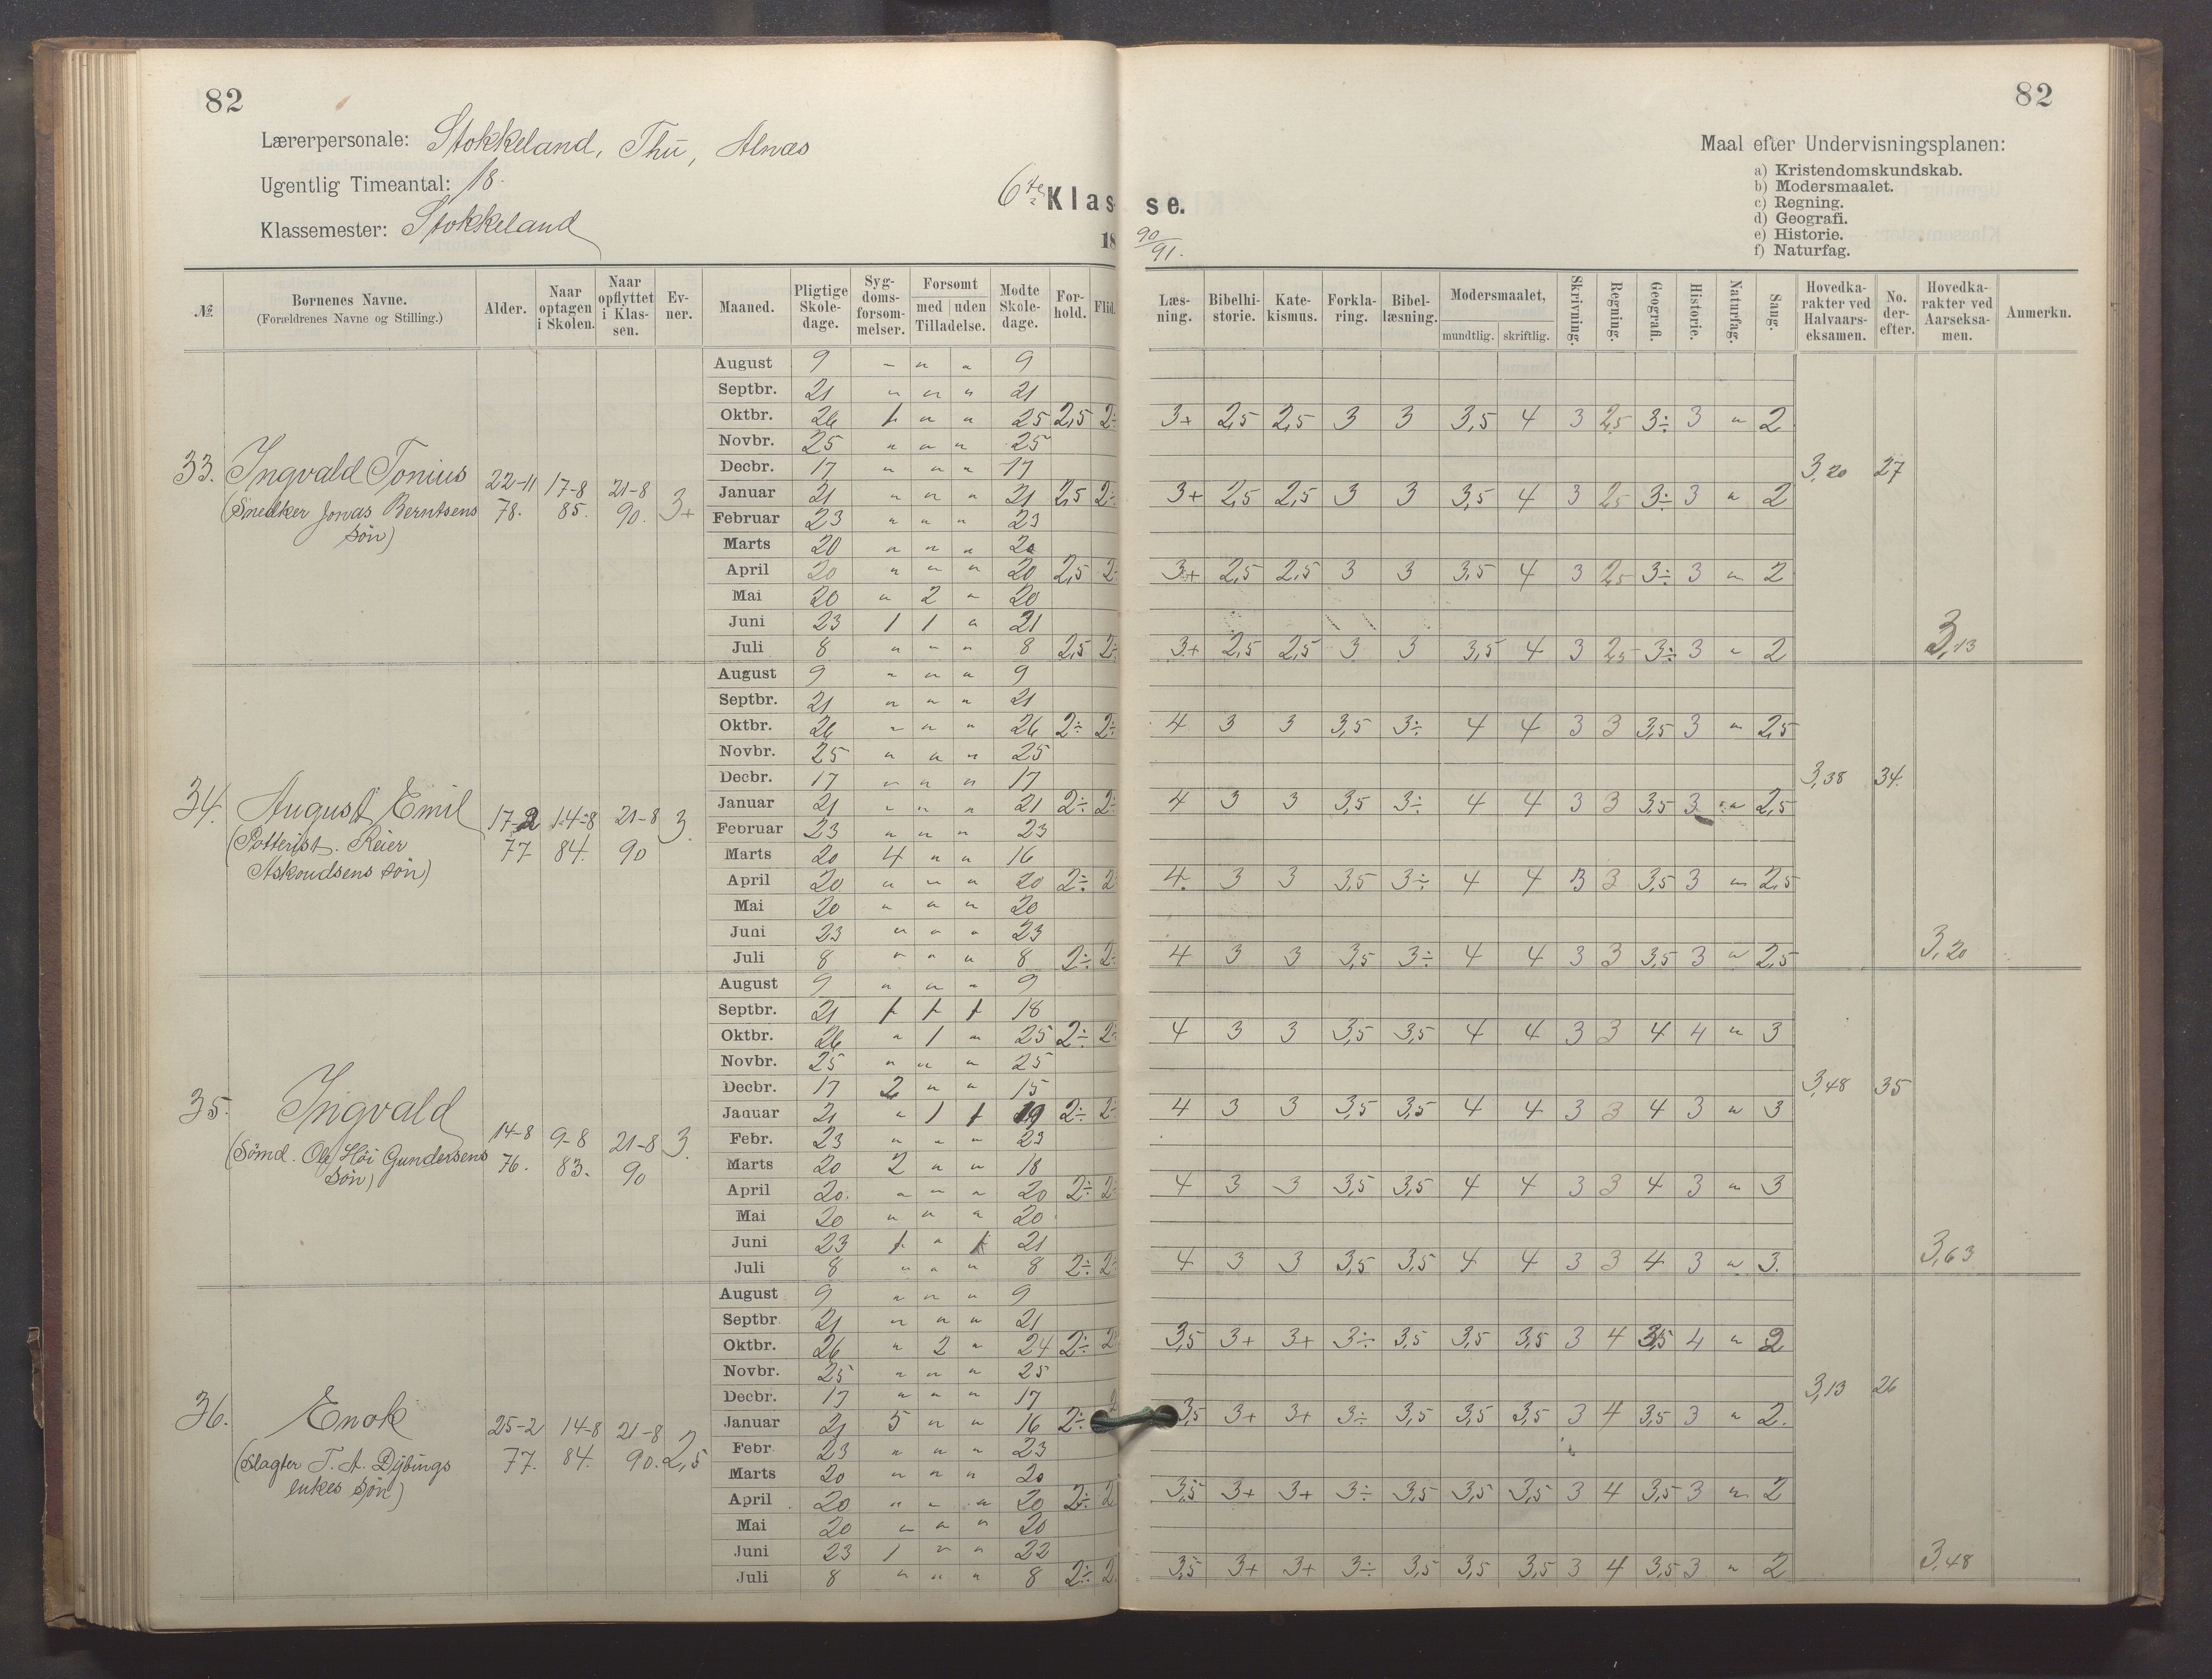 82
Lærerpersonale: Stokkeland, Thu, Alnæs
Ugentlig Timeantal: 18.
Klassemester: Stokkeland
6te Klas
18
№ Bornenes Navne. (Forældrenes Navne og Stilling.) Alder. Naar optagen i Skolen. Naar opflyttet i Klassen. Evner. Maaned. Pligtige Skoledage. Sygdomsforsommelser. Forsomt med | uden Tilladelse. Modte Skoledage. Forhold. Flid.
33. Ingvald Tonius
(Snedker Jonas Berntsens
søn)
22-11 78. 17-8 85. 21-8 90. 3+
August 9 " " " 9
Septbr. 21 " " " 21
Oktbr. 26 1 " " 25 2,5 2÷
Novbr. 25 " " " 25
Decbr. 17 " " " 17
Januar 21 " " " 21 2,5 2÷
Februar 23 " " " 23
Marts 20 " " " 20
April 20 " " " 20 2,5 2÷
Mai 20 " 2 " 20
Juni 23 1 1 " 21
Juli 8 " " " 8 2,5 2÷
34. August Emil
(Potterist. Reier
Askoudsens søn)
17-2 77. 14-8 84. 21-8 90 3.
August 9 " " " 9
Septbr. 21 " " " 21
Oktbr. 26 " " " 26 2÷ 2÷
Novbr. 25 " " " 25
Decbr. 17 " " " 17
Januar 21 " " " 21 2÷ 2÷
Februar 23 " " " 23
Marts 20 4 " " 16
April 20 " " " 20 2÷ 2
Mai 20 " " " 20
Juni 23 " " " 23
Juli 8 " " " 8 2÷ 2÷
35. Ingvald
(Sömd. Ole Höi Gundersens
søn)
14-8 76. 9-8 83. 21-8 90 3.
August 9 " " " 9
Septbr. 21 1 1 1 18
Oktbr. 26 " 1 " 25 2÷ 2÷
Novbr. 25 " " " 25
Decbr. 17 2 " " 15
Januar 21 " 1 1 19 2÷ 2÷
Febr. 23 " " " 23
Marts 20 2 " " 18
April 20. " " " 20 2÷ 2÷
Mai 20 " " " 20
Juni 23 1 " 1 21
Juli 8 " " " 8 2÷ 2÷
36. Enok
(Slagter T. A. Dÿbings
enkes søn)
25-2 77. 14-8 84. 21-8 90. 2,5
August 9 " " " 9
Septbr 21 " " " 21
Oktbr. 26 " 2 " 24 2÷ 2
Novbr. 25 " " " 25
Decbr. 17 " " " 17
Januar 21 5 " " 16 2÷
Febr 23 " " " 23
Marts 20 " " " 20
April 20 " " " 20 2÷ 2
Mai 20 " " " 20
Juni 23 1 " " 22
Juli 8 " " " 8 2÷ 2
82
se.
90/91.
Maal efter Undervisningsplanen:
a) Kristendomskundskab.
b) Modersmaalet.
c) Regning.
d) Geografi.
e) Historie.
f) Naturfag.
Læsning. Bibelhistorie. Katekismus. Forklaring. Bibellæsning. Modersmaalet, mundtlig. skriftlig. Skrivning. Regning. Geografi. Historie. Naturfag. Sang. Hovedkarakter ved Halvaarseksamen. No. derefter. Hovedkarakter ved Aarseksamen. Anmerkn.
3+ 2,5 2,5 3 3 3,5 4 3 2,5 3÷ 3 " 2
3,20 27
3+ 2,5 2,5 3 3 3,5 4 3 2,5 3÷ 3 " 2
3+ 2,5 2,5 3 3 3,5 4 3 2,5 3÷ 3 " 2
3+ 2,5 2,5 3 3 3,5 4 3 2,5 3÷ 3 " 2 3,13
4 3 3 3,5 3÷ 4 4 3 3 3,5 3 " 2,5
3,38 34.
4 3 3 3,5 3÷ 4 4 3 3 3,5 3 " 2,5
4. 3 3 3,5 3÷ 4 4 3 3 3,5 3 " 2,5
4 3 3 3,5 3÷ 4 4 3 3 3,5 3 " 2,5 3,20
4 3 3 3,5 3,5 4 4 3 3 4 4 " 3
3,48 35
4 3 3 3,5 3,5 4 4 3 3 4 3 " 3
4 3 3 3,5 3,5 4 4 3 3 4 3 " 3
4 3 3 3,5 3,5 4 4 3 3 4 3 " 3. 3,63
3,5 3+ 3+ 3÷ 3,5 3,5 3,5 3 4 3,5 4 " 2
3,13 26
3,5 3+ 3+ 3÷ 3,5 3,5 3,5 3 4 3,5 3 " 2.
3,5 3+ 3+ 3÷ 3,5 3,5 3,5 3 4 3,5 3 " 2
3,5 3+ 3+ 3÷ 3,5 3,5 3,5 3 4 3,5 3 " 2 3,48